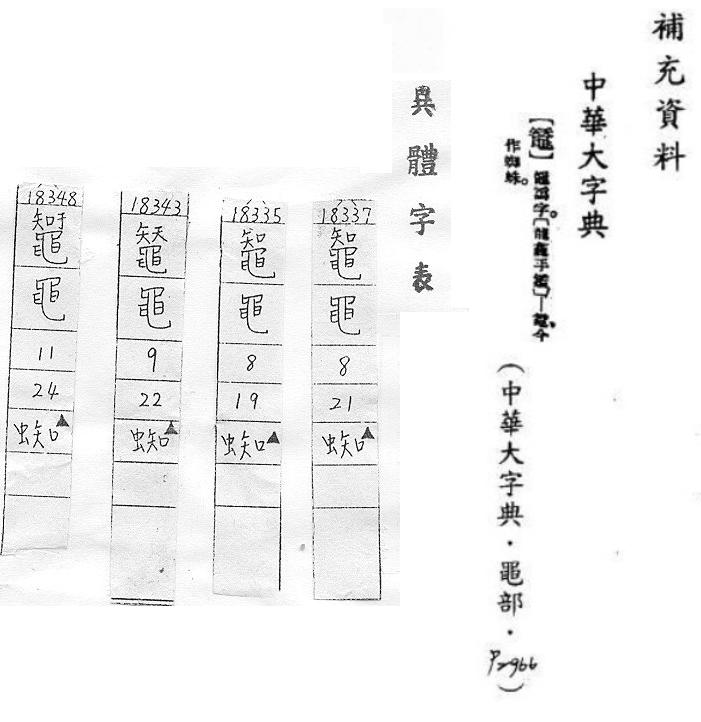 補充資料
中華大字典
鼅譌字。〔龍龕手鑑〕—鼄、今
作蜘蛛。
(中華大字典．黽部．P2966)
異體字表
18337
黽
8
21
蜘▲
18335
鼅
黽
8
19
蜘▲
18343
黽
9
22
蜘▲
18348
黽
11
24
蜘▲